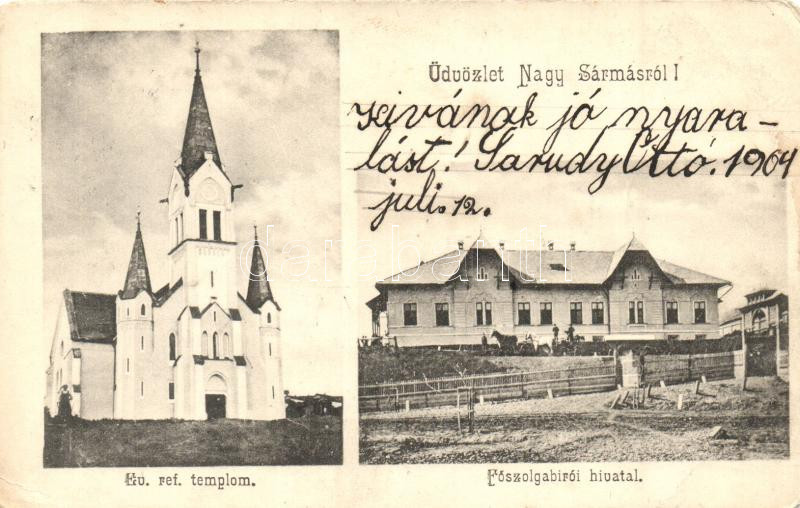 Üdvözlet Nagy Sármásról!
kivánok jó nyara-
lást! Sarudy Ottó. 1904
juli. 12.
darabanth
Ev. ref. templom.
Főszolgabirói hivatal.